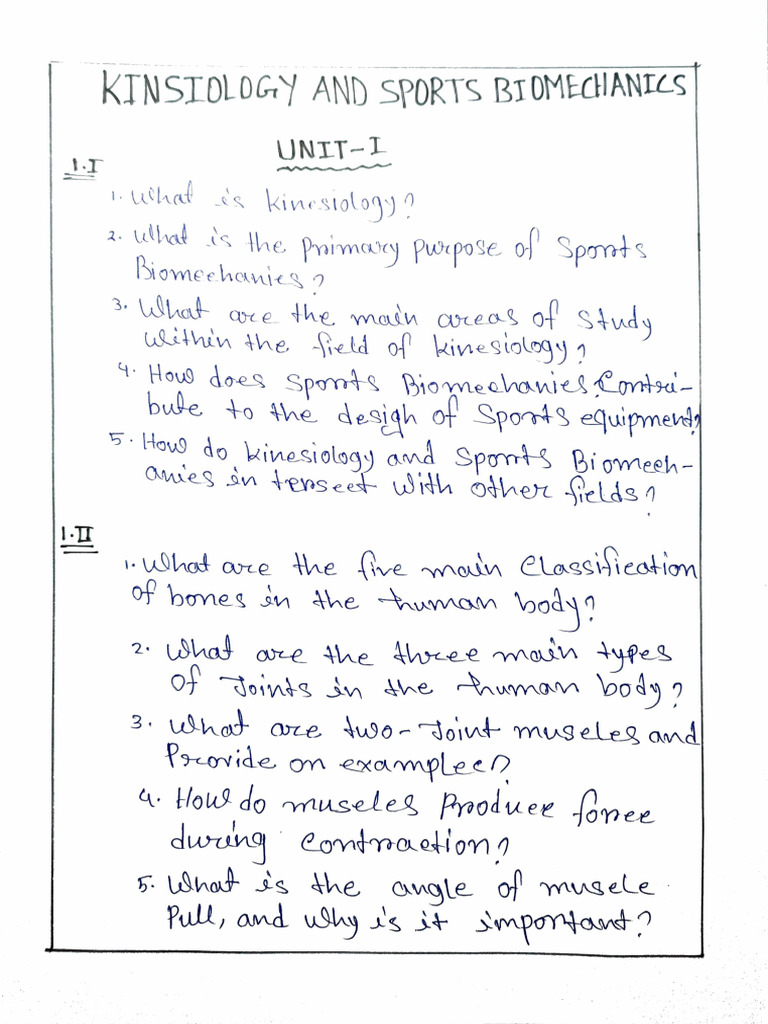 KINSIOLOGY AND SPORTS BIOMECHANICS
UNIT-I
1.I
1. What is kinesiology?
2. What is the primary purpose of Sports
Biomechanics?
3. What are the main areas of Study
within the field of kinesiology?
4. How does Sports Biomechanics Contri-
bute to the design of Sports equipment?
5. How do kinesiology and Sports Biomech-
anics in terseet with other fields?
1.II
1. What are the five main Classification
of bones in the human body?
2. What are the three main types
of Joints in the human body?
3. What are two-Joint muscles and
Provide on example?
4. How do muscles Produce force
during contraction?
5. What is the angle of muscle
Pull, and why is it important?